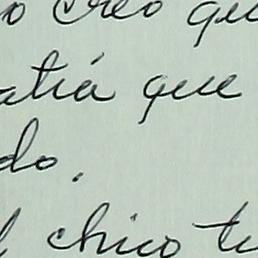 o creo qu
atiá que
do.
l chico tu